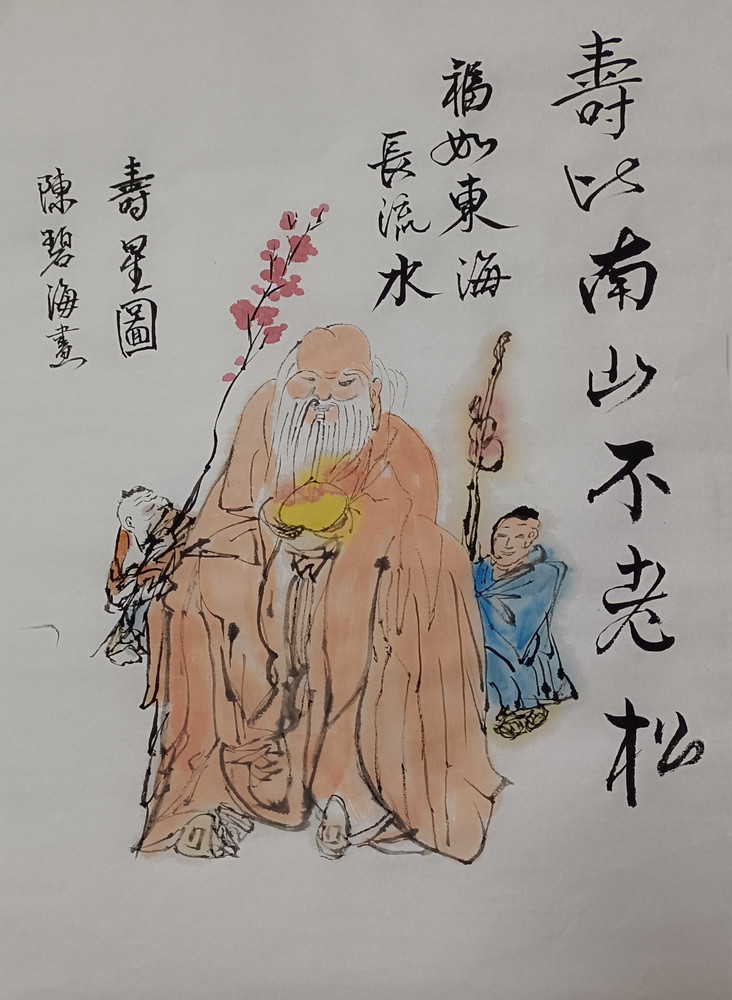 壽比南山不老松
福如東海
長流水
壽星圖
陳碧海畫